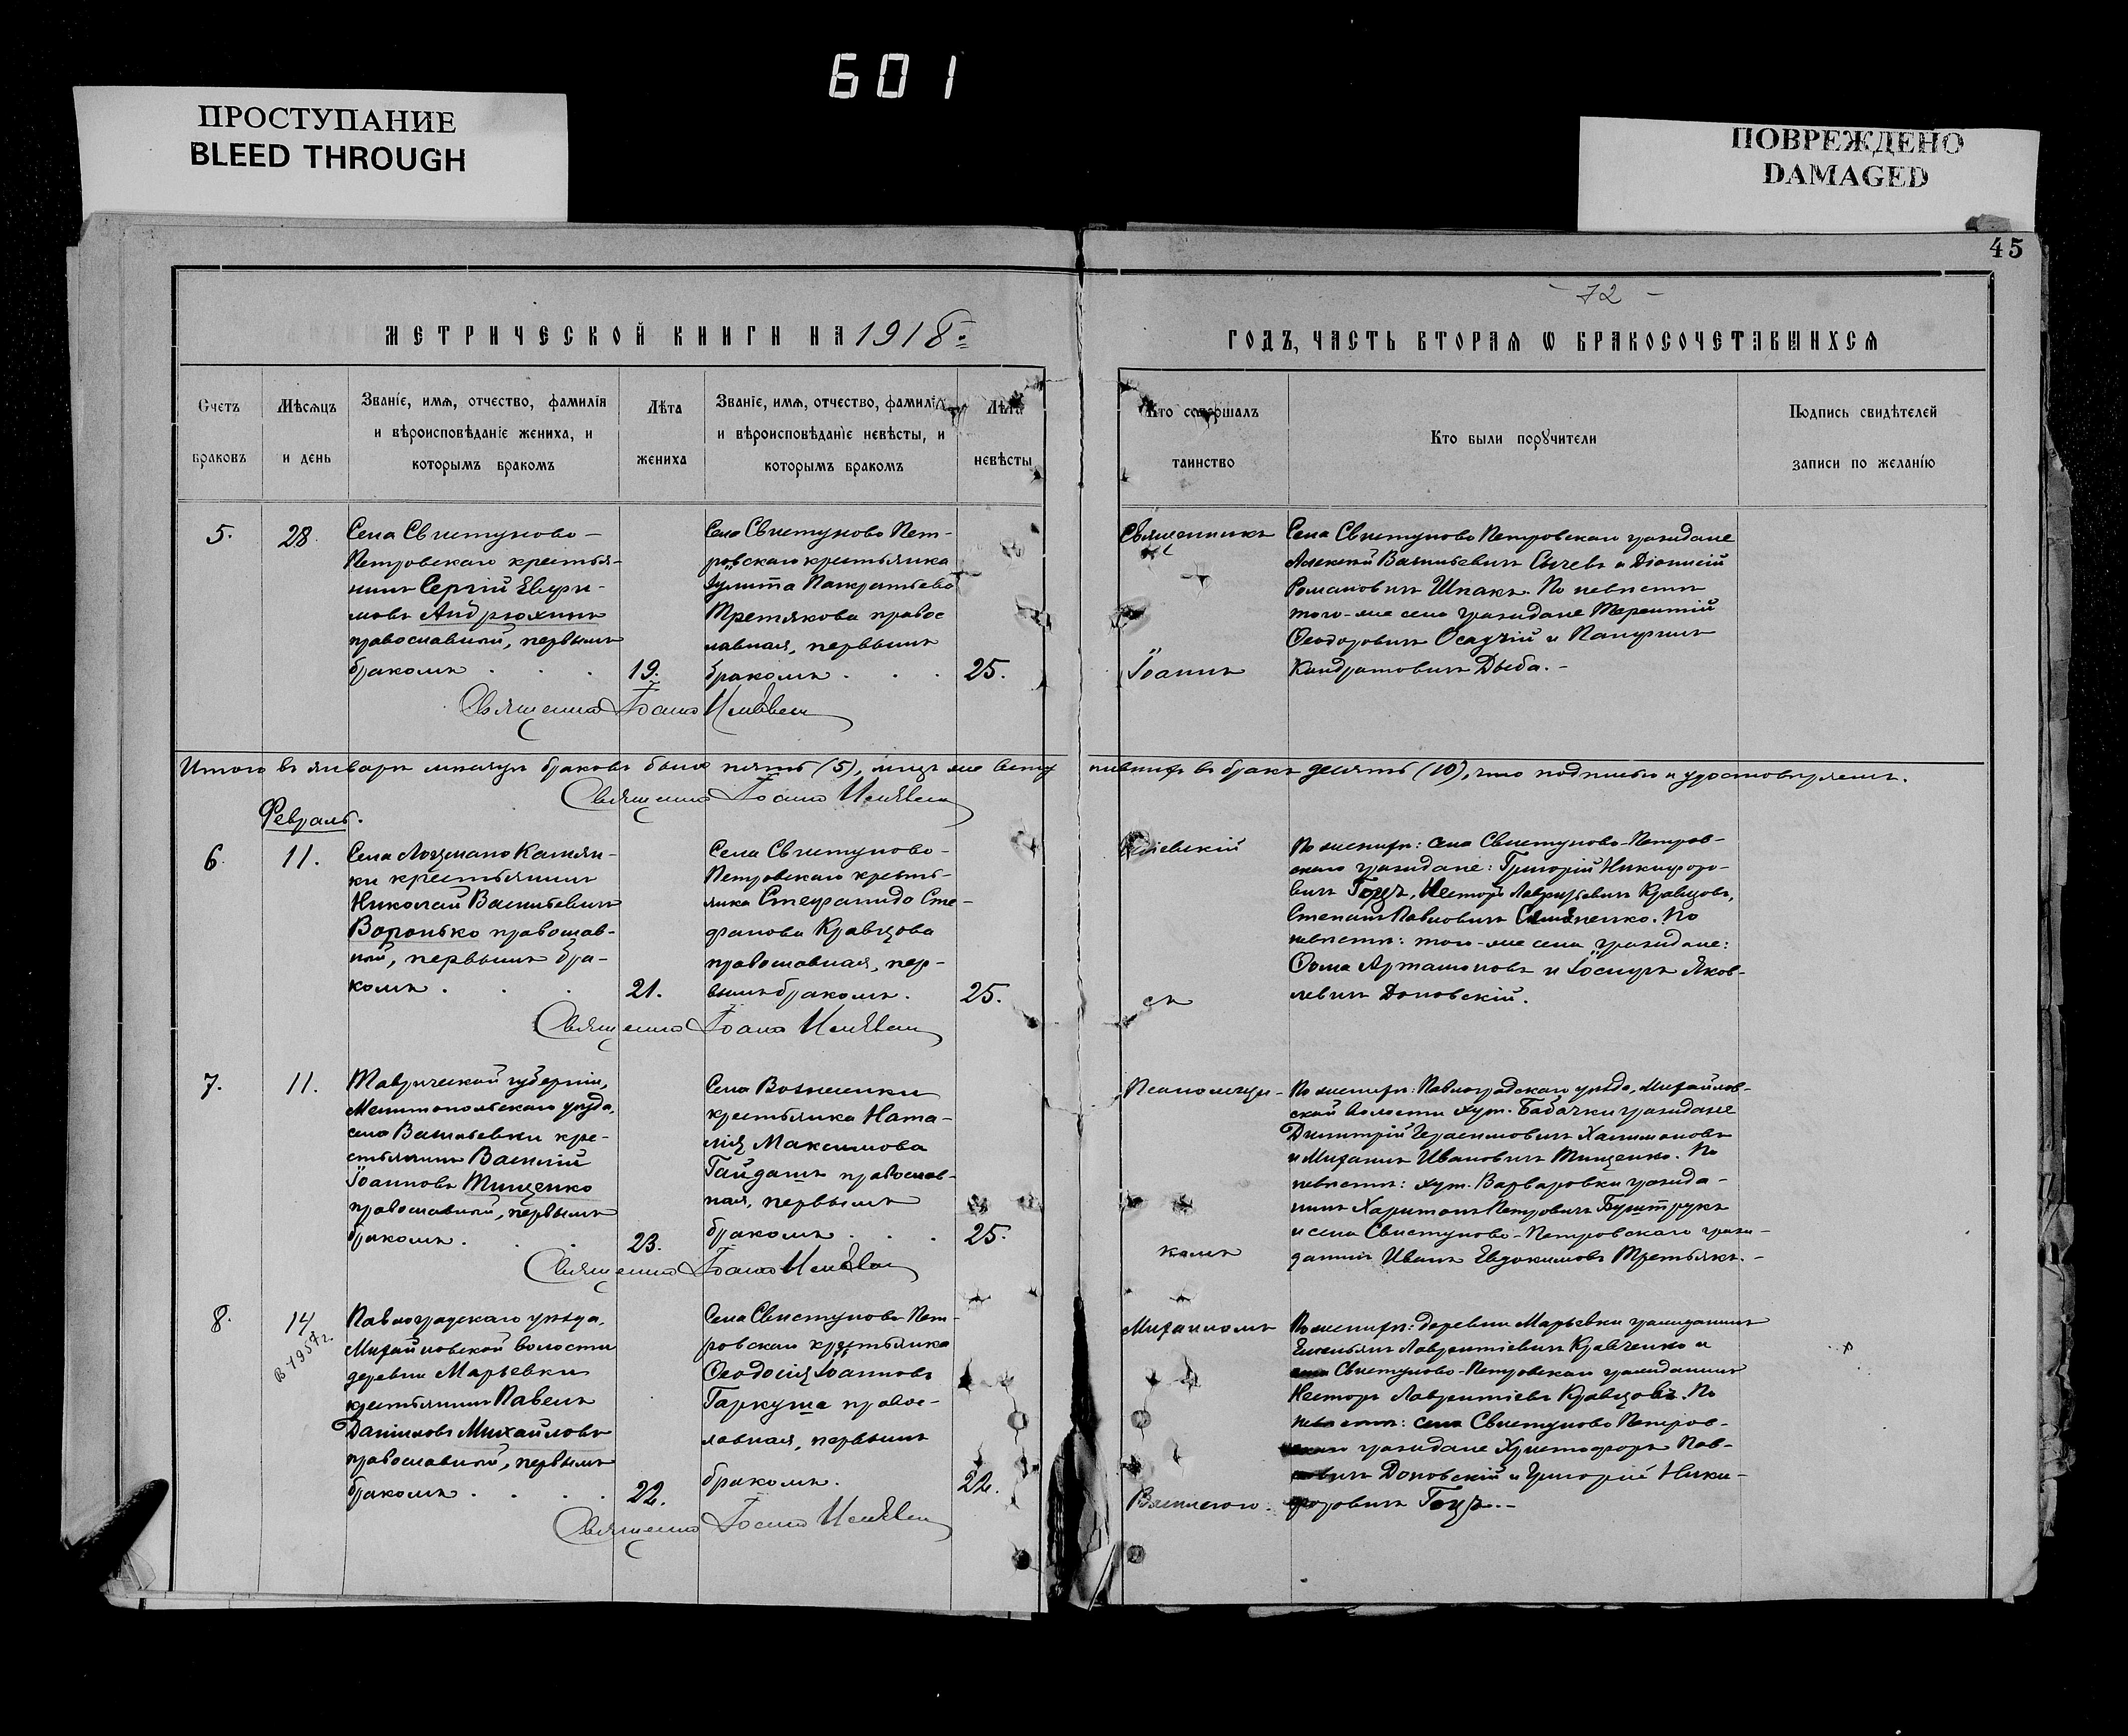 601
ПРОСТУПАНИЕ
BLEED THROUGH
ПОВРЕЖДЕНО
DAMAGED
45
- 72 -
МЕТРИЧЕСКОЙ КНИГИ НА 1918 г.
ГОДЪ, ЧАСТЬ ВТОРАѦ Ѡ БРАКОСОЧЕТАВШИХСѦ
Счетъ
браковъ
Мѣсѧцъ
и день
Званіе, имѧ, отчество, фамилія
и вѣроисповѣданіе жениха, и
которымъ бракомъ
Лѣта
жениха
Званіе, имѧ, отчество, фамилія
и вѣроисповѣданіе невѣсты, и
которымъ бракомъ
Лѣта
невѣсты
Кто совершалъ
таинство
Кто были порꙋчители
Подпись свидѣтелей
записи по желанію
5.
28.
Села Свистуново-
Петровскаго крестья-
нинъ Сергій Евфи-
мовъ Андрюхинъ
православный, первымъ
бракомъ . . .
19.
Села Свистуново Пет-
ровскаго крестьянка
Іулитта Панкратьева
Третякова правос
лавная, первымъ
бракомъ . . .
25.
Священникъ
Іоаннъ
Села Свистуново Петровскаго граждане
Алексѣй Васильевичъ Сычевъ и Діонисій
Романовичъ Шпакъ. По невѣстѣ
того-же села граждане Терентій
Ѳеодоровичъ Осадчій и Панфилъ
Кондратовичъ Дыба. -
Священникъ Іоаннъ
Итого въ январѣ мѣсяцѣ браковъ было пять (5), лицъ же всту
пившихъ въ бракъ десять (10), что подписью и удостовѣряемъ.
Священникъ Іоаннъ
Февраль.
6.
11.
Села Лоцмано Камян-
ки крестьянинъ
Николай Васильевичъ
Воронько православ-
ный, первымъ бра-
комъ . . .
21.
Села Свистуново-
Петровскаго кресть-
янка Стефанида Сте-
фанова Кравцова
православная, пер-
вымъ бракомъ .
25.
съ
По женихѣ: села Свистуново-Петров-
скаго граждане: Григорій Никифоро-
вичъ Гоцъ, Несторъ Лаврентьевичъ Кравцовъ,
Степанъ Павловичъ Семененко. По
невѣстѣ: того-же села граждане:
Ѳома Артамоновъ и Іосифъ Яков-
левичъ Доновскій.
Священникъ Іоаннъ
7.
11.
Таврической губерніи,
Мелитопольскаго уѣзда,
села Васильевки кре-
стьянинъ Василій
Іоанновъ Тищенко
православный, первымъ
бракомъ . . .
23.
Села Вознесенки
крестьянка Ната-
лія Максимова
Гайдашъ православ-
ная, первымъ
бракомъ . . .
25.
Псаломщи-
комъ
По женихѣ: Павлоградскаго уѣзда, Михайлов-
ской волости хут. Бабачки граждане
Димитрій Герасимовичъ Халимоновъ
и Михаилъ Ивановичъ Тищенко. По
невѣстѣ: хут. Варваровки гражда-
нинъ Харитонъ Петровичъ
и села Свистуново-Петровскаго граж-
данинъ Иванъ Евдокимовъ Третьякъ. -
Священникъ Іоаннъ
8.
14
В 1957 г.
Павлоградскаго уѣзда,
Михайловской волости
деревни Марьевки
крестьянинъ Павелъ
Даніиловъ Михайловъ
православный, первымъ
бракомъ . . . .
22.
Села Свистуново Пет-
ровскаго крестьянка
Ѳеодосія Іоаннова
Гаркуша правос-
лавная, первымъ
бракомъ.
22.
Михаиломъ
По женихѣ: деревни Марьевки гражданинъ
Емельянъ Лаврентіевичъ Кравченко и
села Свистуново-Петровскаго гражданинъ
Несторъ Лаврентіевъ Кравцовъ. По
невѣстѣ: села Свистуново Петров-
скаго граждане Христофоръ Пав-
ловичъ Доновскій и Григорій Ники-
форовичъ Гоцъ. -
Священникъ Іоаннъ